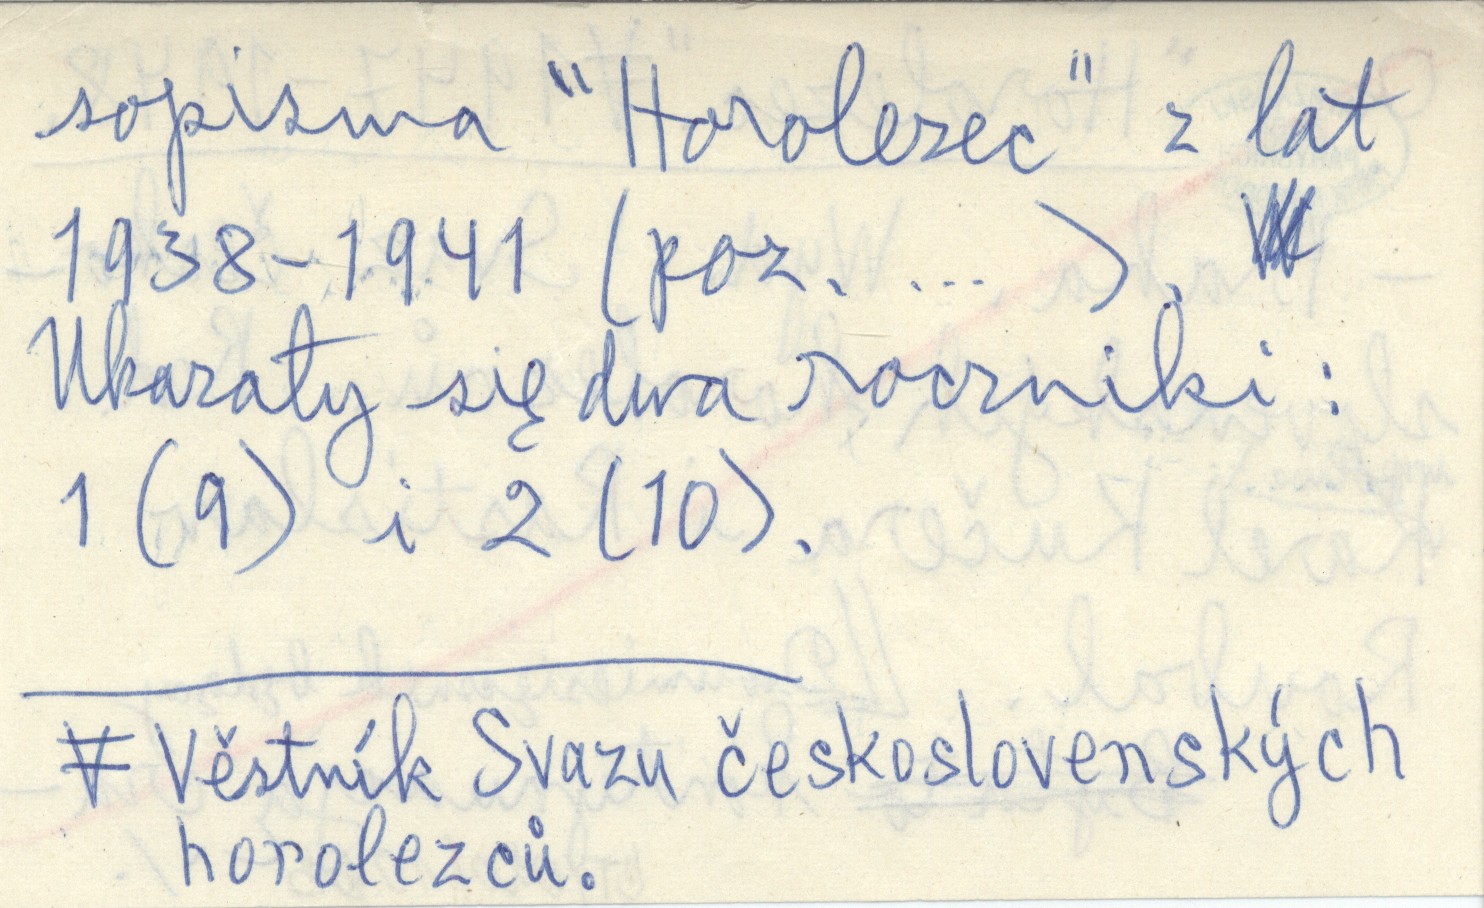 sopisma "Horolezec" z lat
1938-1941 (poz. ... ).
Ukazały się dwa roczniki:
1 (9) i 2 (10).
Věstník Svazu československých
horolezců.